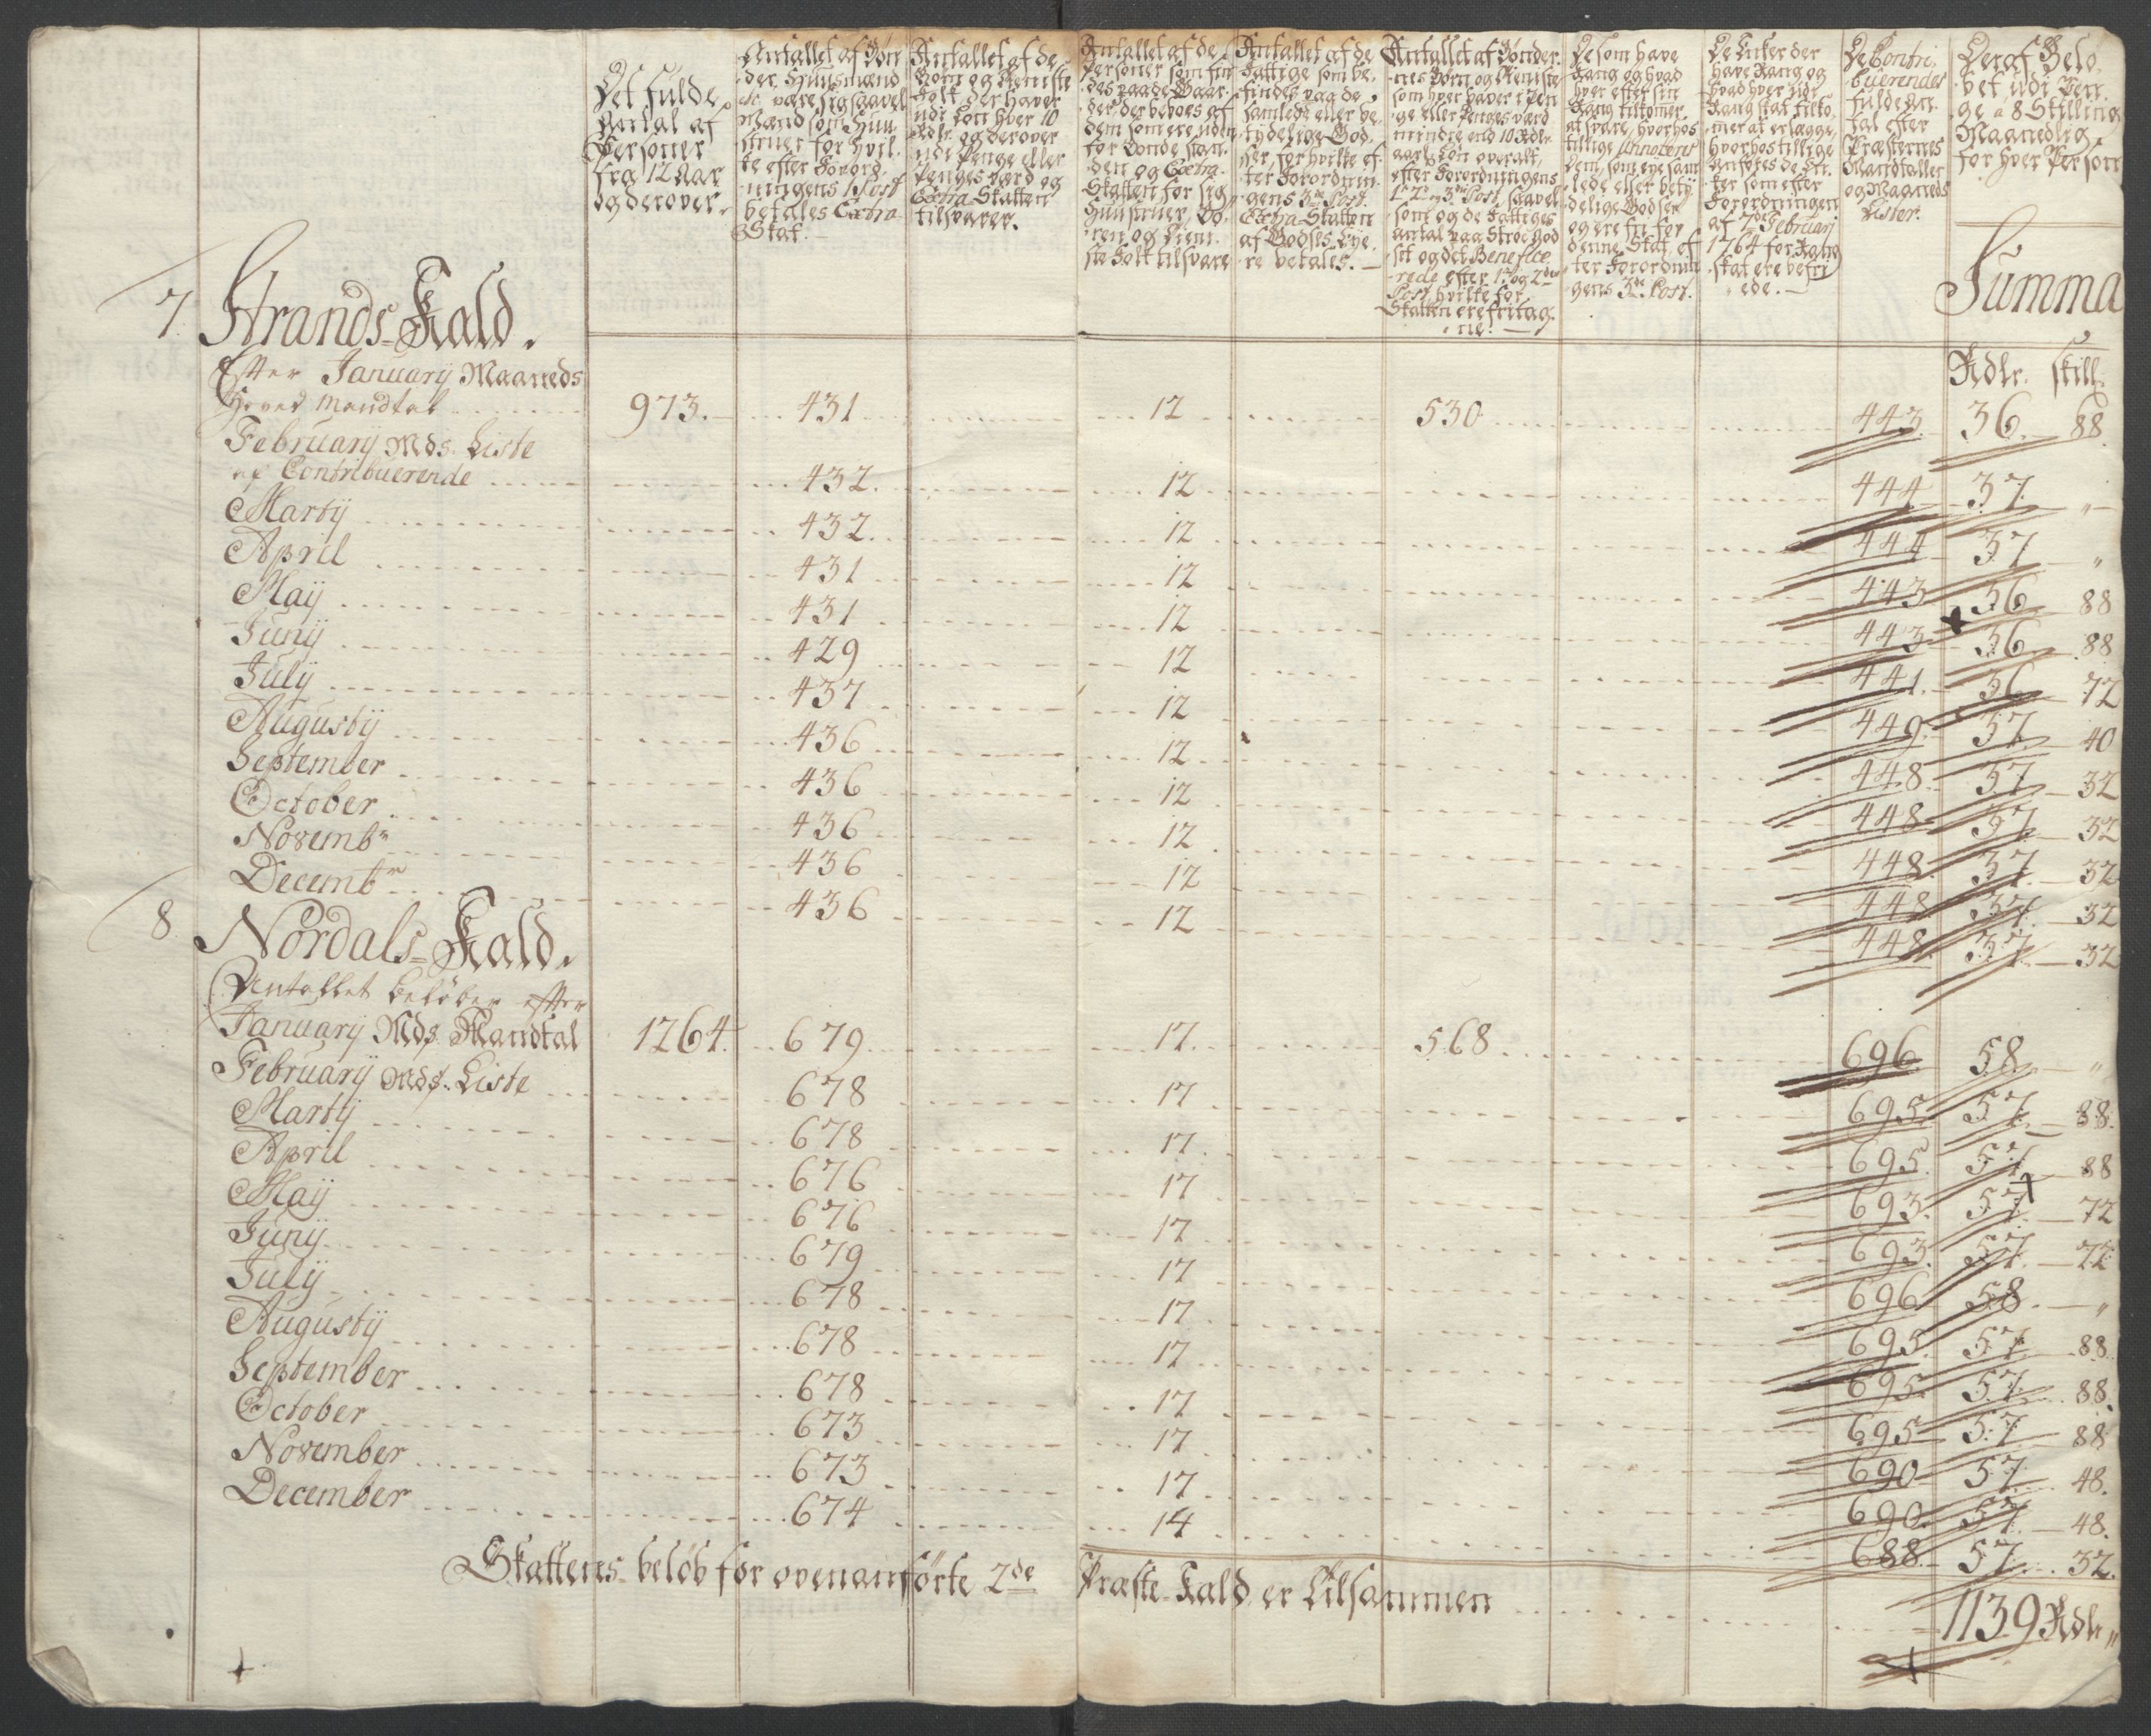 Det fulde
Antal af
Personer
fra 12 Aar
og derover.
Antallet af Bøn
der, Huusmænd
&c. være sig saavel
Mænd som Huu
struer for hvil-
ke efter Forord-
ningens 1 Post
betales Extra
Skat.
Antallet af de
Børn og Tieniste
Folk der haver
udi Løn hver 10
Rdlr. og derover
udi Penge eller
Penges værd og
Extra Skatten
tilsvarer.
Antallet af de
Personer som fin
des paa de Gaar-
der, der beboes af
dem som ere uden
for Bonde stan-
den og Extra
Skatten for sig,
Huustruer, Bø-
ren og Tieni-
ste Folk tilsvare
Antallet af de
Fattige som be-
findes paa de
samlede eller be-
tydelige God-
ser, for hvilke ef-
ter Forordnin-
gens 3de Post.
Extra Skatten
af Godsets Eye-
re betales.
Antallet af Bønder-
nes Børn og Tieniste
som hver haver i Pen
ge eller Penges værd
mindre end 10 Rdlr.
aarl. Løn overalt,
efter Forordningens
1te 2den og 3die Post, saavel
som og de Fattiges
antal paa Strøe God
set og det Benefice
rede efter 1te og 2den
Post, hvilke for
Skatten ere fritag-
ne.
De som have
Rang og hvad
hver efter sin
Rang tilkomer
at svare, hvorhos
tillige Annoteres
dem, som eye sam
lede eller bety-
delige Godser
og ere fri for
denne Skat ef-
ter Forordnin
gens 3de Post.
De Enker der
have Rang og
hvad hver udi
Rang skat tilko-
mer at erlægge,
hvorhos tillige
Anføres de En-
ker som efter
Forordningen
af 7de February
1764 for Rang
skat ere befri
ede.
De Contri-
buerendes
fulde An-
tal efter
Præsternes
Mandtaller
og Maaneds
Lister.
Deraf Belø-
bet udi Pen-
ge a 8 Skilling
Maanedlig
for hver Person
Summa
7. Strands-Kald.
Rdlr. skill.
Efter January Maaneds
Hoved Mandtal 973. 431 12 530 443. 36. 88.
February Mds. Liste
af Contribuerende 432. 12 444 37. "
Martij 432. 12 444 37 "
April 431 12 443 36 88
Maij 431 12 443 36 88
Junij 429 12 441. 36 72
July 437 12 449. 37. 40
Augustij 436 12 448 37 32
September 436 12 448 37 32
October 436 12 448 37. 32
Novembr 436 12 448 37. 32
Decembr 436 12 448 37. 32
8. Nordals-Kald.
Antallet beløber efter
January Mds. Mandtal 1264. 679. 17. 568 696 58. "
February Mds. Liste 678 17 695 57 88.
Martij 678 17 695. 57 88
April 676 17 693. 57 72
Maij 676 17 693. 57. 72
Junij 679 17 696 58. "
July 678 17 695 57 88
Augustij 678 17 695. 57 88.
September 678 17 695 57 88
October 673 17 690 57. 48.
November 673 17 690 57. 48.
December 674 14 688. 57. 32.
Skattens beløb for ovenanførte 2de Præste-Kald er tilsammen 1139 Rdlr "